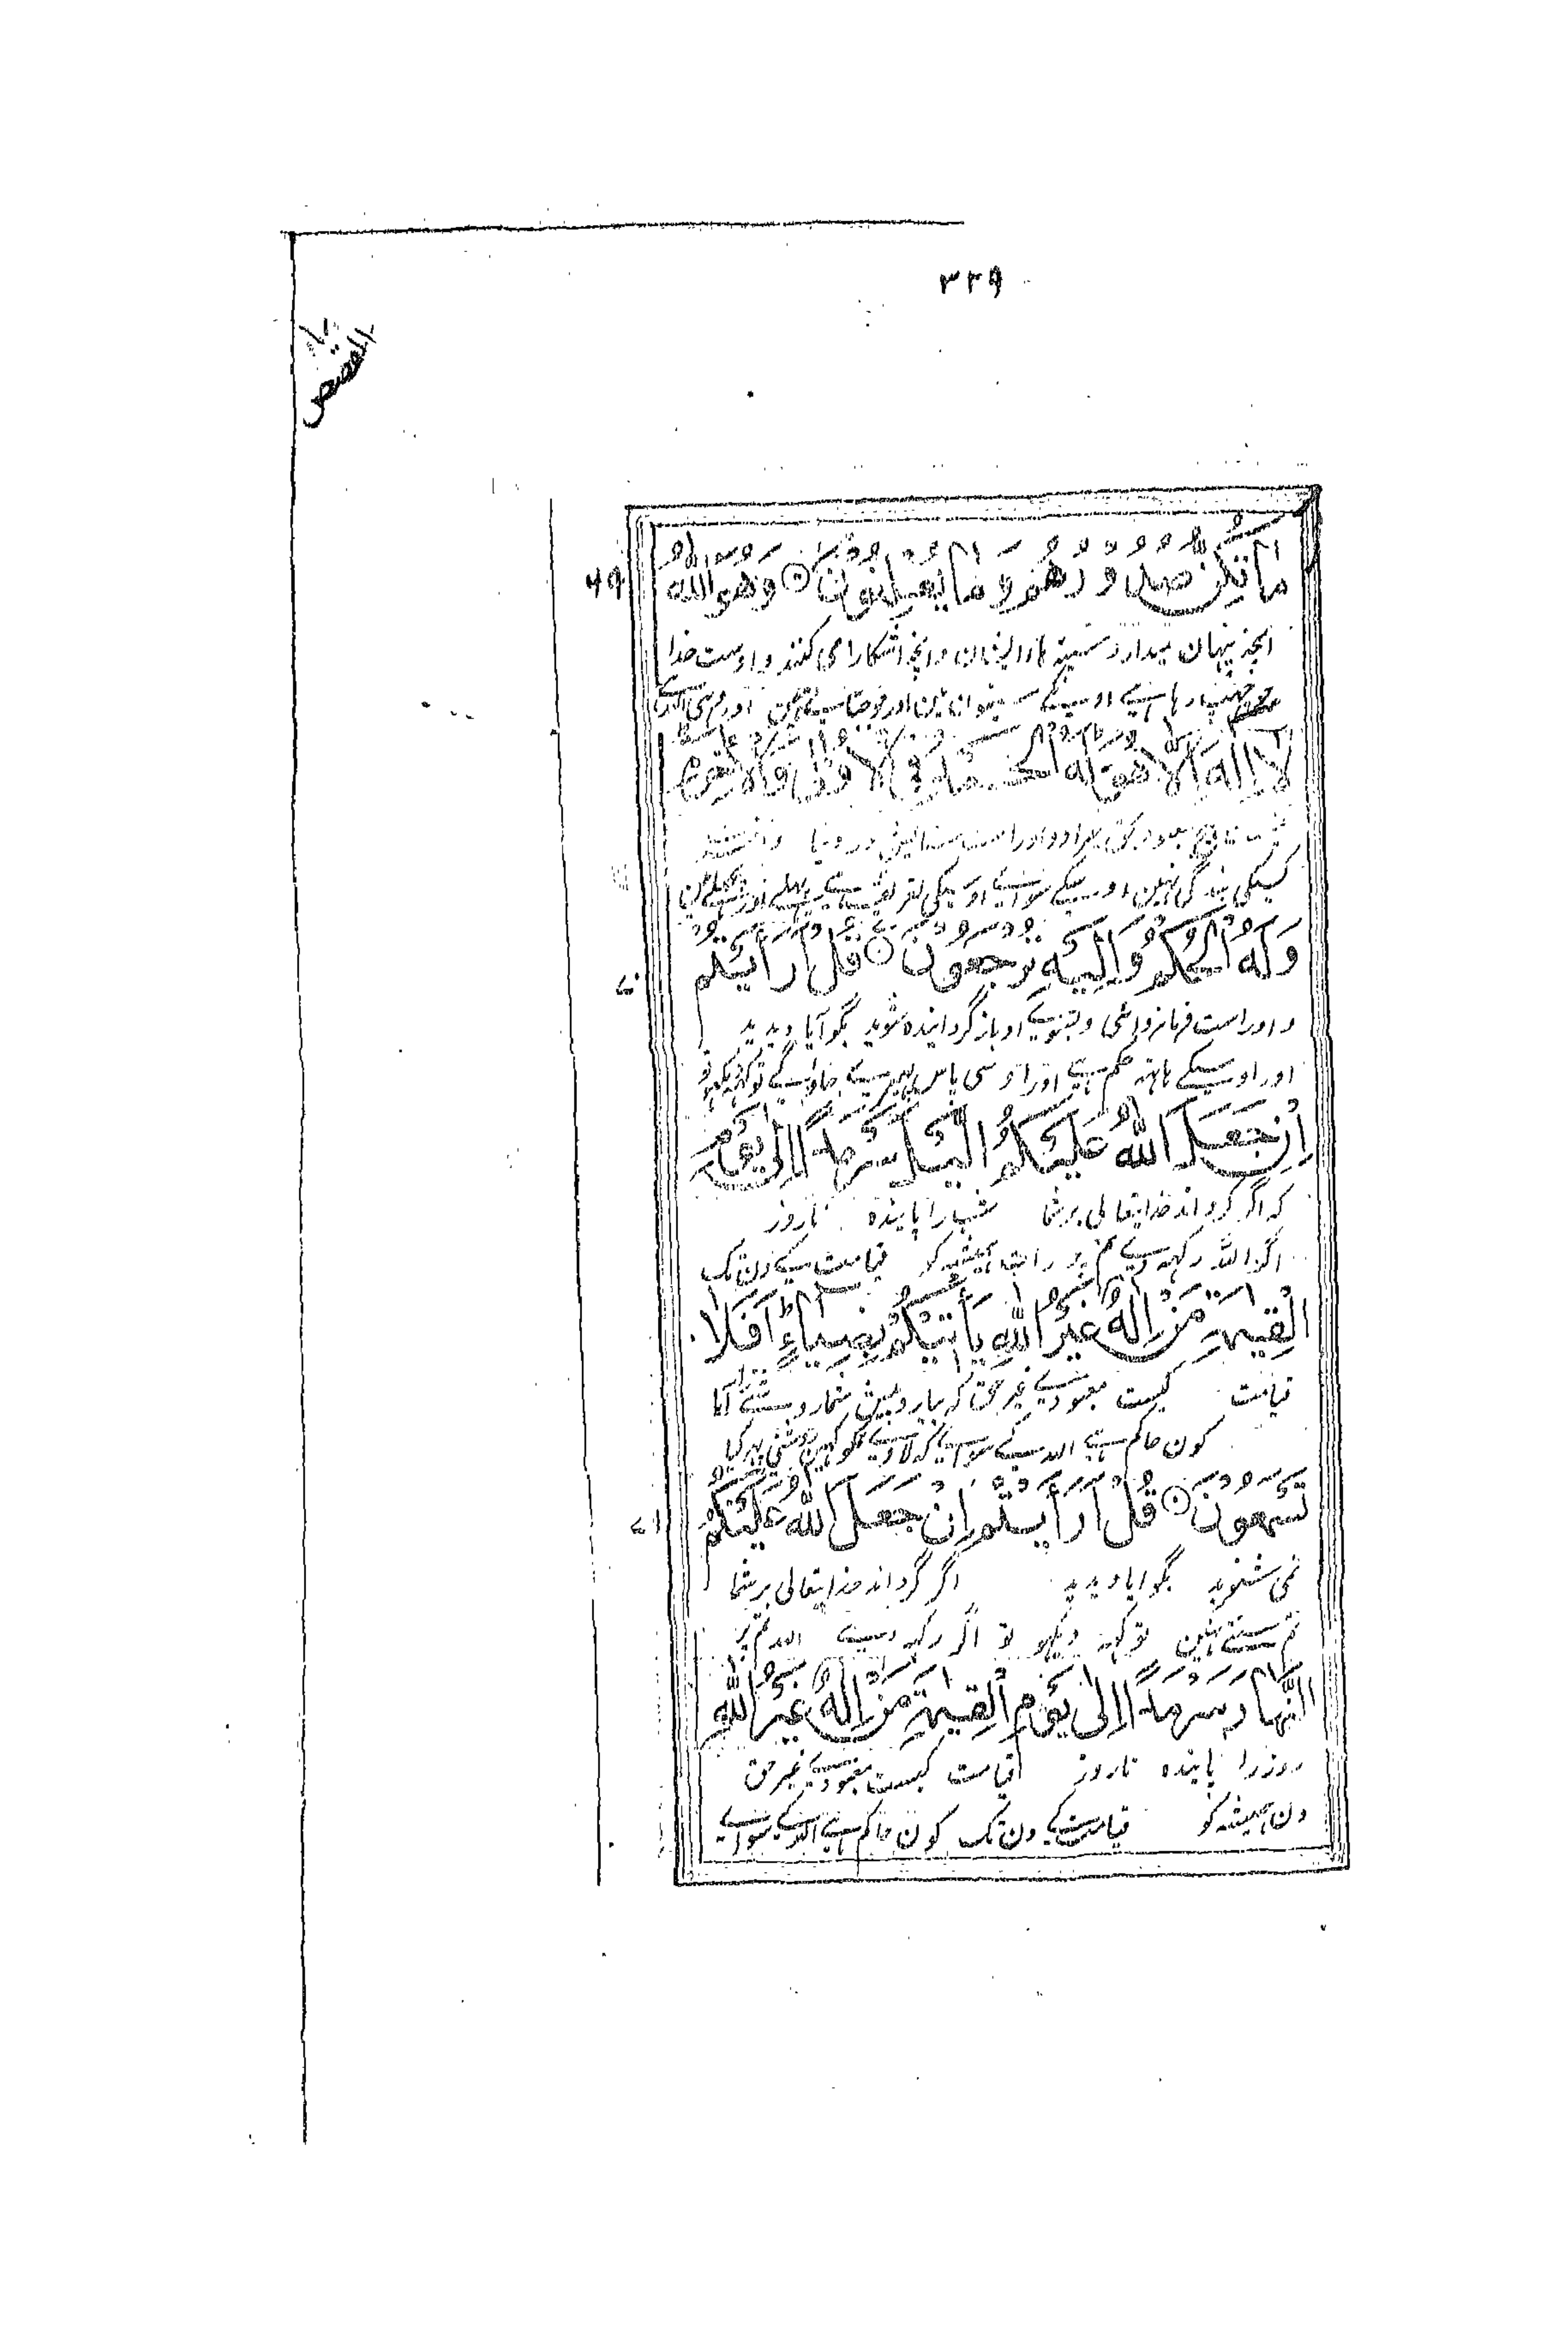 ۳۲۹
القصص
مَا تُكِنُّ صُدُوْرُهُمْ وَمَا يُعْلِنُوْنَ ۝ وَهُوَ اللهُ
۶۹
انچه پنهان میدارد سینه هاء ایشان و انچه اشکارا می کنند و اوست خدا
جو چھپ رہا ہے اونکے سینوان مین اور جو جتاتے ہین اور وہی اللہ ہے
لَا اِلٰهَ اِلَّا هُوَ لَهُ الْحَمْدُ فِي الْاُوْلٰى وَالْاٰخِرَةِ
نیست هیچ معبود بحق مگر او و اوراست ستایش در دنیا و
کسیکی بندگی نہین اوسکے سوائے اوسیکی تعریف ہے پہلے اور پچھلے مین
وَلَهُ الْحُكْمُ وَاِلَيْهِ تُرْجَعُوْنَ ۝ قُلْ اَرَاَيْتُمْ
۷۰
و اوراست فرمانروائی و بسوی او باز گردانیده شوید بگو آیا دیدید
اور اوسیکے ہاتہ حکم ہے اور اوسی پاس پھیرے جاؤ گے تو کہہ دیکھو تو
اِنْ جَعَلَ اللهُ عَلَيْكُمُ الَّيْلَ سَرْمَدًا اِلٰى يَوْمِ
که اگر گرداند خدایتعالی بر شما شب را پاینده تا روز
اگر اللہ رکہہ دے تم پر رات ہمیشہ کو قیامت کے دن تک
الْقِيٰمَةِ مَنْ اِلٰهٌ غَيْرُ اللهِ يَأْتِيْكُمْ بِضِيَاءٍ اَفَلَا
قیامت کیست معبودے غیر حق که بیارد پیش شما روشنی آیا
کون حاکم ہے اللہ کے سوائے کہ لادے تمکو کہین روشنی پھر کیا
تَسْمَعُوْنَ ۝ قُلْ اَرَاَيْتُمْ اِنْ جَعَلَ اللهُ عَلَيْكُمُ
۷۱
نمی شنوید بگو ایا دیدید اگر گرداند خدایتعالی بر شما
تم سنتے نہین تو کہہ دیکہو تو اگر رکہہ دے اللہ تم پر
النَّهَارَ سَرْمَدًا اِلٰى يَوْمِ الْقِيٰمَةِ مَنْ اِلٰهٌ غَيْرُ اللهِ
روز را پاینده تا روز قیامت کیست معبودے غیر حق
دن ہمیشہ کو قیامت کے دن تک کون حاکم ہے اللہ کے سوائے